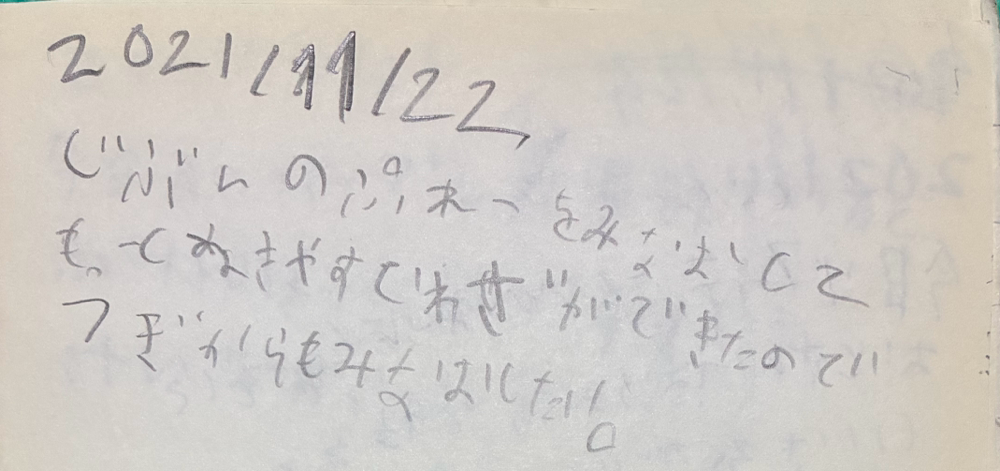 2021/11/22
じぶんのぷれーをみなおして
もってぬきやすいわざができたので
つぎからもみなおしたい。